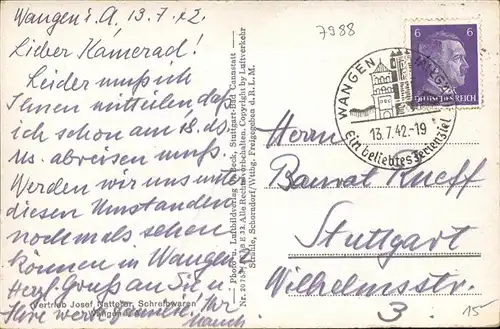 Wangen i. A. 13.7.42.
Lieber Kamerad!
Leider muß ich
Ihnen mitteilen daß
ich schon am 18. ds.
Ms. abreisen muß.
Werden wir uns unter
diesen Umständen
nochmals sehen
können in Wangen?
Herzl. Gruß an Sie u.
Ihre werte Familie. Ihr
Vertrieb Josef Natterer, Schreibwaren
Wangen
Photo u. Luftbildverlag Beck, Stuttgart-Bad Cannstatt
Alle Rechte vorbehalten. Copyright by Luftverkehr
Strähle, Schorndorf/Wttbg. Freigegeben d. R.L.M.
7988
6 6
DEUTSCHES REICH
WANGEN ALLGÄU
13.7.42-19
Ein beliebtes Ferienziel
Herrn
Baurat Rueff
Stuttgart
Wilhelmsstr.
3
15